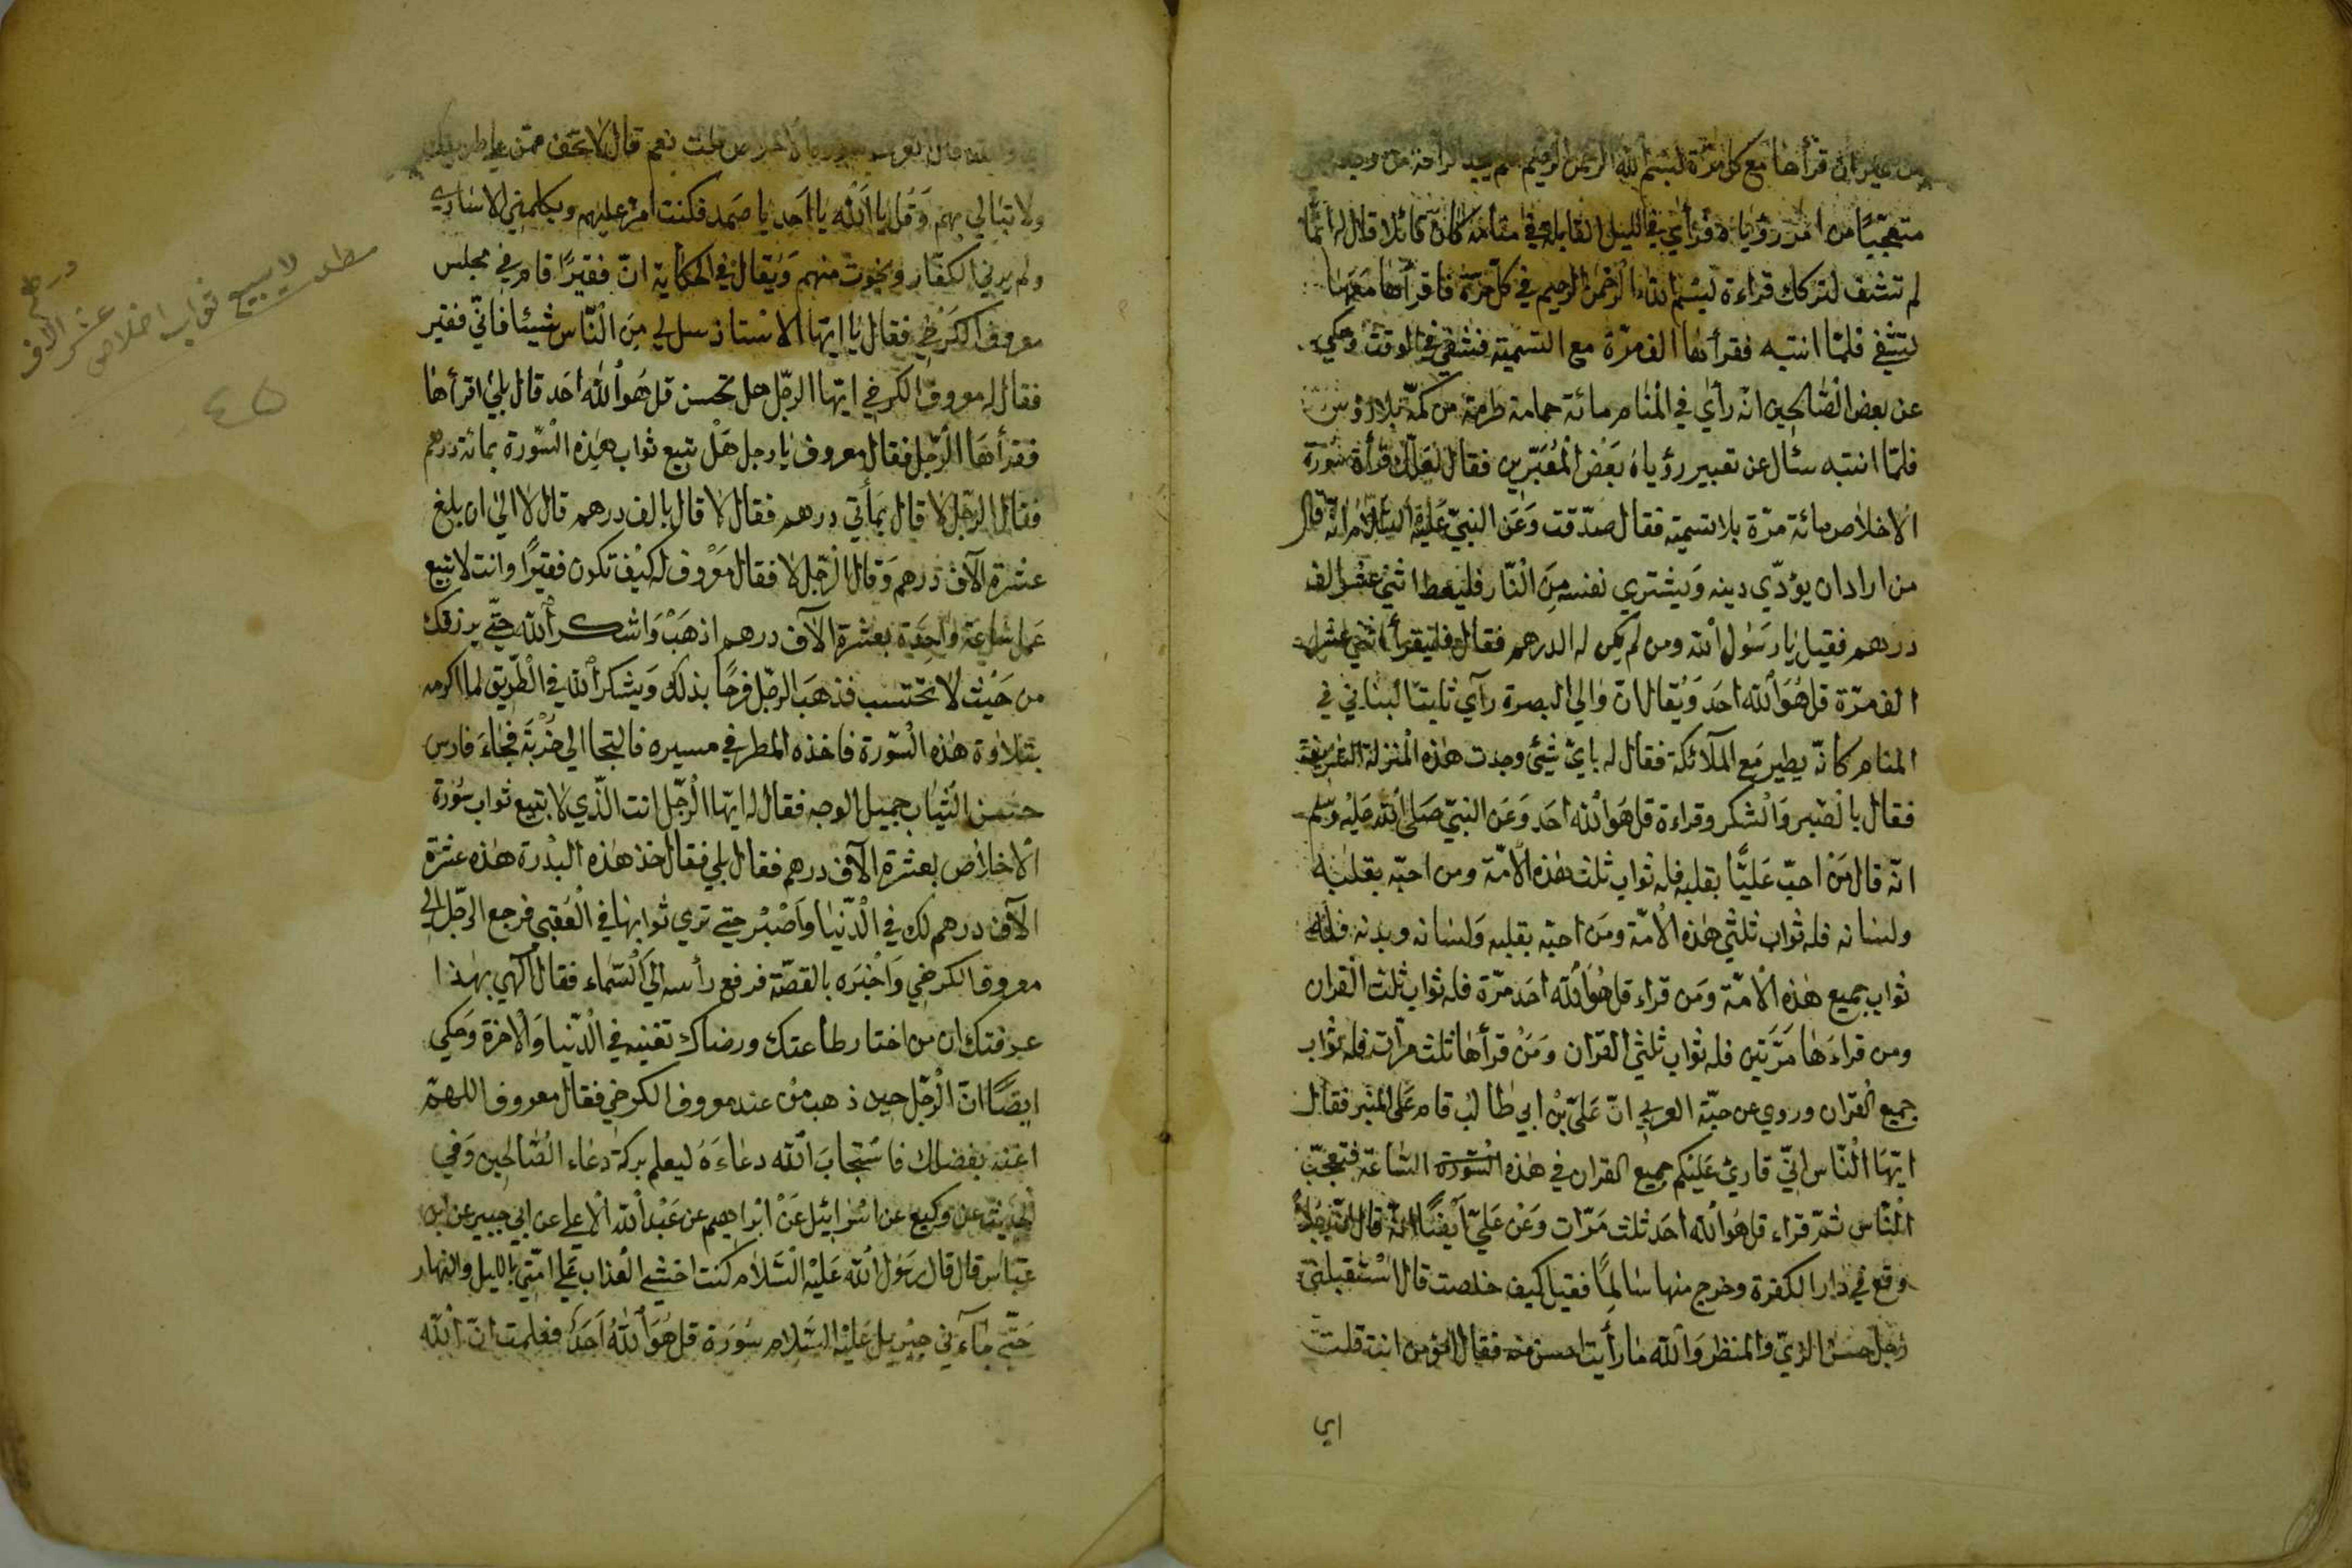 من غير ان قرأها مع كل مرّة بسم الله الرحمن الرحيم فلم يجد الراحة من وجعه
متعجّبًا من امر رؤياه فرأي في الليل القابلة في منامه كان قائلا قال له انّما
لم تشف لتركك قراءة بسم الله الرّحمن الرحيم في كلّ مرّة فاقرأها معها
لتشفي فلمّا انتبه فقرأها الف مرّة مع التسمية فشفي في الوقت وحكي
عن بعض الصّالحين انّه رأي في المنام مائة حمامة طرحة من كمّه بلا رؤس
فلمّا انتبه سئال عن تعبير رؤياه بَعْض المُعَبّرين فقال لعلّك قرأة سورة
الاخلاص مائة مرّة بلا تسمية فقال صدّقت وَعَن النبيّ عَليْه السّلام انّه قال
من اراد ان يؤدّي دينه وَيشتري نفسه مِنَ النّار فليعط اثني عشر الف
درهم فقيل يا رَسُول الله ومن لم يكن له الدرهم فقال فليقرأ اثني عشر
الف مرّة قل هُوَ الله احَد وَيُقال انّ والي البصرة رآي ثابتا لبناني في
المنام كانّه يطير مَع الملآئكة فقال له بايّ شئ وجدت هذه المنزلة الشريفة
فقال بالصّبر وَالشكر وقراءة قل هَوَ الله احَد وَعَن النبيّ صَلى الله عَليْه وسلم
انّه قال مَنْ احبّ عَليًّا بقلبه فله ثواب ثلث هذه الامّة ومن احبّه بقلبه
ولسانه فله ثواب ثلثي هذه الامّة ومَن احبّه بقلبه وَلسانه وبدنه فله
ثواب جميع هذه الامّة وَمَن قراء قل هُوَ الله احَد مرّة فله ثواب ثلث القران
ومن قراءَها مَرّتين فله ثواب ثلثي القران وَمَنْ قرأها ثلث مرّات فله ثواب
جميع القرّان وروي عن حبّة العربي انّ عَليّ بْن ابي طالب قام عَلى المنبر فقال
ايّهَا النّاس انّي قاريْ عَليْكم جميع القران في هذه السّورة السّاعة فتعجّب
النّاس ثمّ قراء قل هُوَ الله احَد ثلث مَرّات وَعَنْ عَليّ اَيْضًا انّه قال انّ رجلاً
وقع في دار الكفرة وخرج منها سالِمًا فقيل كيف خلصت قال اسْتقبلني
رَجل حسَن الزيّ والمنظر وَالله ما رأيت احسن منه فقال امؤمن انت قلت
اي
قال لا تخف ممّن
ولا تبالي بهم وَقُل يا اَلله يا احَد يا صَمد فكنت امرّ عليهم ويكلمني الاساري
ولم يرني الكفّار ونجوت منهم وَيُقال في الحكاية انّ فقيرًا قام في مجلس
معروف الكَرْخي فقال يا ايّها الاستاذ سل لي مِنَ النّاس شيئا فانّي فقير
فقال له معروف الكرخي ايّها الرّجل هل تحسن قل هُوَ الله احَد قال بلي اقرأها
فقرأها الرّجل فقال معروف يا رجل هَلْ تبيع ثواب هٰذه السّورة بمائة درهم
فقال الرّجل لا قال بمأتي درهم فقال لا قال بالف درهم قال لا الي ان بلغ
عشرة الآف درهم وَقال الرّجل لا فقال معروف له كيْف تكون فقيرًا وانت لا تبيع
عَمل ساعة واحِدَة بعشرة الآف درهم اذهَبْ وَاشكر الله حتّي يرزقك
من حَيْث لا تحتسب فذهَبَ الرّجل فرحًا بذلك وَيشكر الله في الطّريق لما اكرمه
بتلاوة هٰذه السّورة فاخذه المطر في مسيره فالتجا الي خرْبَة فجاءَ فارس
حسن الثّياب جميل الوجه فقال له ايّها الرّجل انت الّذي لا تبيع ثواب سُورة
الاخلاص بعشرة الآف درهم فقال بلي فقال خذ هٰذه البدْرة هٰذه عشرة
الآف درهم لك في الدّنيا وَاَصْبْر حتّي تري ثوابها في العُقبي فرجع الرّجل الي
معروف الكرخي وَاَخْبَره بالقصّة فرفع رأسه الي السّماء فقال الٓهي بهٰذا
عرفتك ان من اختار طاعتك ورضاك تغنيه في الدّنيا وَالاخرة وَحكي
ايضًا انّ الرّجل حين ذهب منْ عند معروف الكرخي فقال معروف اللهمّ
اغنه بفضلك فاسْتجابَ الله دعاءَهُ ليعلم بركة دعاء الصّالحِين وَفي
الحديث عن وكيع عن اسْرائيل عَنْ ابْراهيم عن عَبْد الله الاعلي عن ابي جبير عن ابن
عبّاس قال قال رَسُول الله عَليْه السّلام كنت اخشي العذاب عَلي امّتي بالليل والنهار
حَتّي جآءَني جبْريل عَليْه السّلام سُورَة قل هُوَ اللهُ اَحَدٌ فعلمت انّ الله
مطلب لا يبيع ثواب اخلاص
عشر الاف
درهم
٤٥